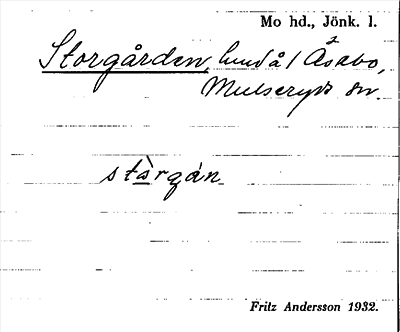 Mo hd., Jönk. l.
Storgården, hmd å 1 Åsabo,
Mulseryds sn.
stårgån
Fritz Andersson 1932.